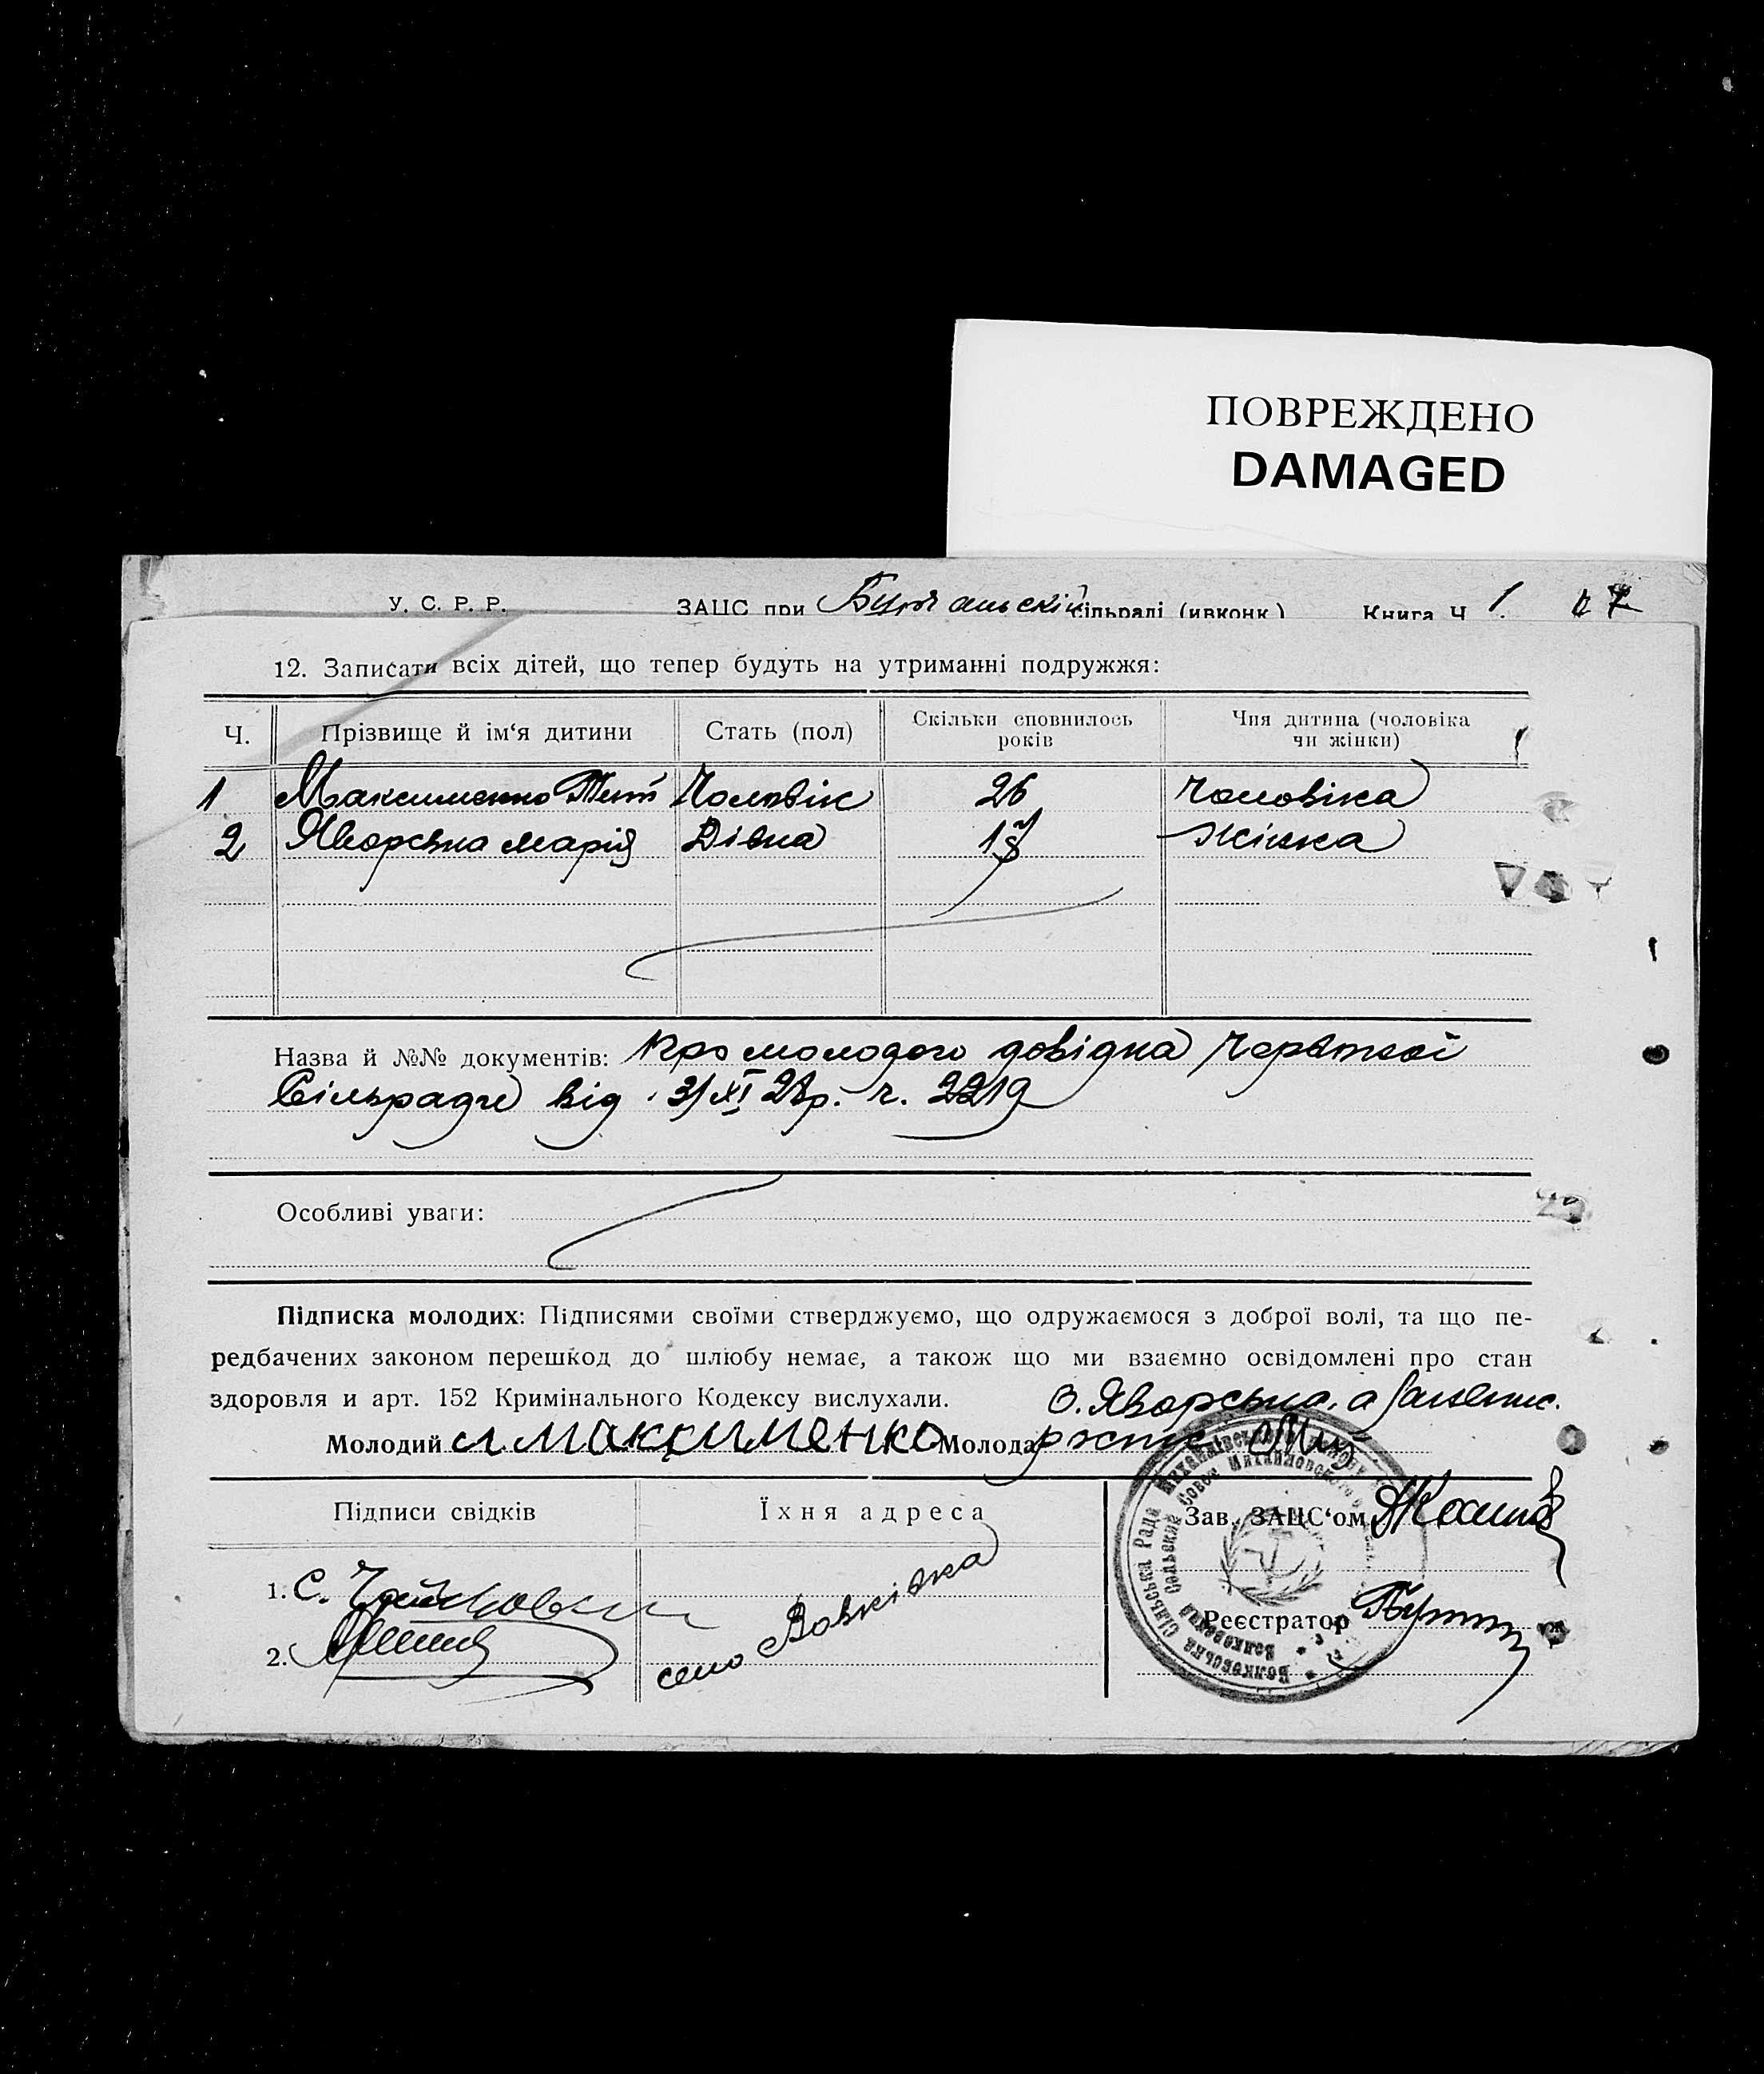 ПОВРЕЖДЕНО
DAMAGED
У. С. Р. Р. ЗАЦС при сільраді (ивконк.) Книга Ч 1
12. Записати всіх дітей, що тепер будуть на утриманні подружжя:
Ч. Прізвище й ім‘я дитини Стать (пол) Скільки сповнилось років Чия дитина (чоловіка чи жінки)
1 Максименко Чоловік 26 Чоловіка
2 Яворська Марія Дівка 18 Жінка
Назва й №№ документів: Про молодого довідка
Сільради від 3/XI 28р. ч. 2219
Особливі уваги:
Підписка молодих: Підписями своїми стверджуємо, що одружаємося з доброї волі, та що пе-
редбачених законом перешкод до шлюбу немає, а також що ми взаємно освідомлені про стан
здоровля и арт. 152 Кримінального Кодексу вислухали. Яворська, а
Молодий Максименко Молода
Підписи свідків Їхня адреса Зав. ЗАЦС‘ом
1. С.
2.
село Вовківка
Реєстратор
Волковська Сільська Рада Михайлівського
Волковский Сельский Совет Михайловского